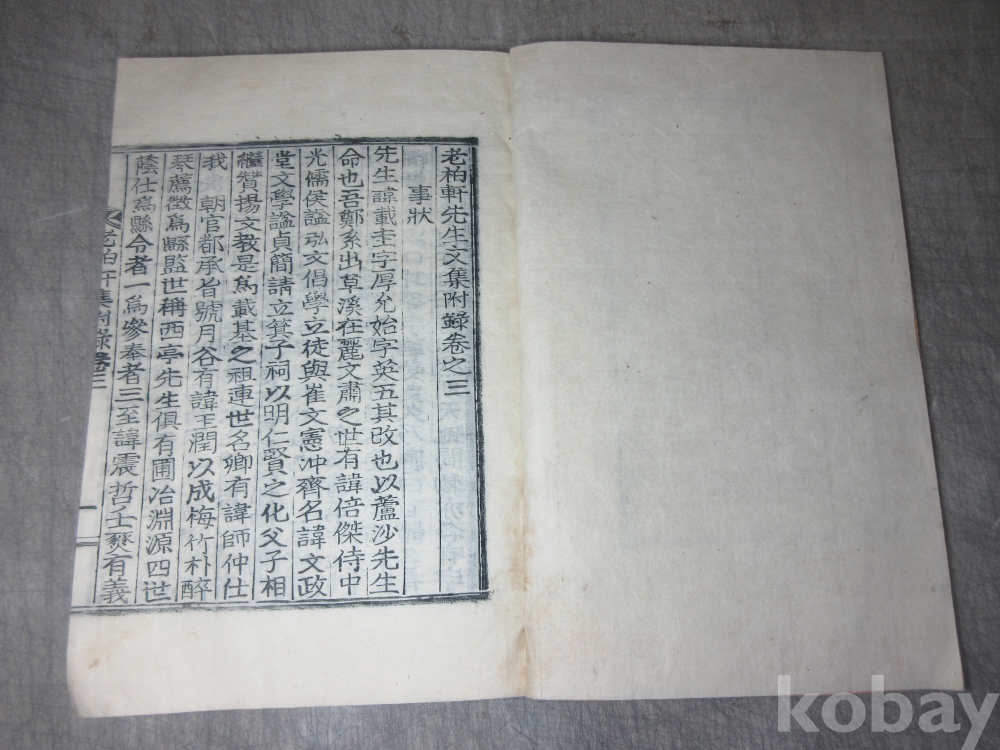 老柏軒先生文集附錄卷之三
事狀
先生諱載圭字厚允始字英五其改也以蘆沙先生
命也吾鄭系出草溪在麗文肅之世有諱倍傑侍中
光儒侯謚弘文倡學立徒與崔文憲冲齊名諱文政
堂文學謚貞簡請立箕子祠以明仁賢之化父子相
繼贊揚文教是爲載基之祖連世名卿有諱師仲仕
我 朝官都承旨號月谷有諱玉潤以成梅竹朴醉
琴薦徵爲縣監世稱西亭先生俱有圃冶淵源四世
蔭仕爲縣令者一爲參奉者三至諱震哲壬燹有義
老柏軒集附錄卷三
一
kobay